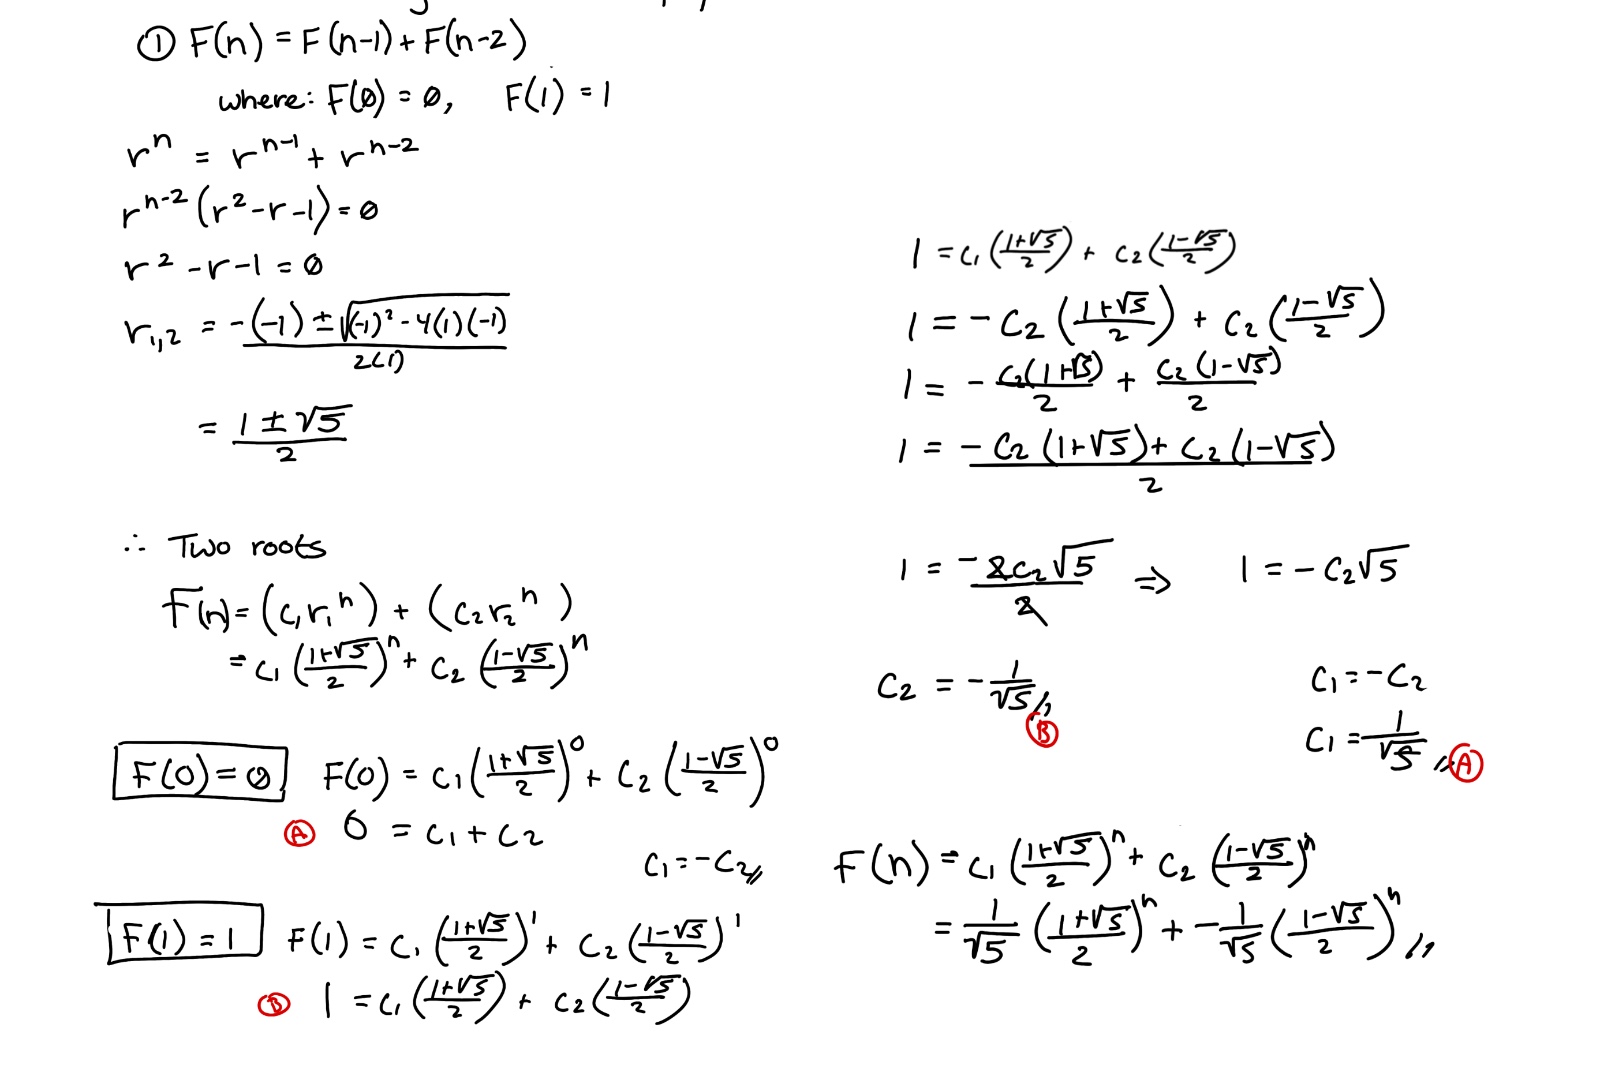 ① F(n) = F(n-1) + F(n-2)
where: F(0) = 0, F(1) = 1
rⁿ = rⁿ⁻¹ + rⁿ⁻²
rⁿ⁻² (r² - r - 1) = 0
r² - r - 1 = 0
r₁,₂ = -(-1) ± √((-1)² - 4(1)(-1)) / 2(1)
= (1 ± √5) / 2
∴ Two roots
F(n) = (c₁r₁ⁿ) + (c₂r₂ⁿ)
= c₁ ((1+√5)/2)ⁿ + c₂ ((1-√5)/2)ⁿ
F(0) = 0 F(0) = c₁ ((1+√5)/2)⁰ + c₂ ((1-√5)/2)⁰
Ⓐ 0 = c₁ + c₂
c₁ = -c₂ //
F(1) = 1 F(1) = c₁ ((1+√5)/2)¹ + c₂ ((1-√5)/2)¹
Ⓑ 1 = c₁ ((1+√5)/2) + c₂ ((1-√5)/2)
1 = c₁ ((1+√5)/2) + c₂ ((1-√5)/2)
1 = -c₂ ((1+√5)/2) + c₂ ((1-√5)/2)
1 = - c₂(1+√5)/2 + c₂(1-√5)/2
1 = (-c₂ (1+√5) + c₂ (1-√5)) / 2
1 = -2c₂√5 / 2 ⇒ 1 = -c₂√5
c₂ = -1/√5 // Ⓑ
c₁ = -c₂
c₁ = 1/√5 // Ⓐ
F(n) = c₁ ((1+√5)/2)ⁿ + c₂ ((1-√5)/2)ⁿ
= 1/√5 ((1+√5)/2)ⁿ + -1/√5 ((1-√5)/2)ⁿ //